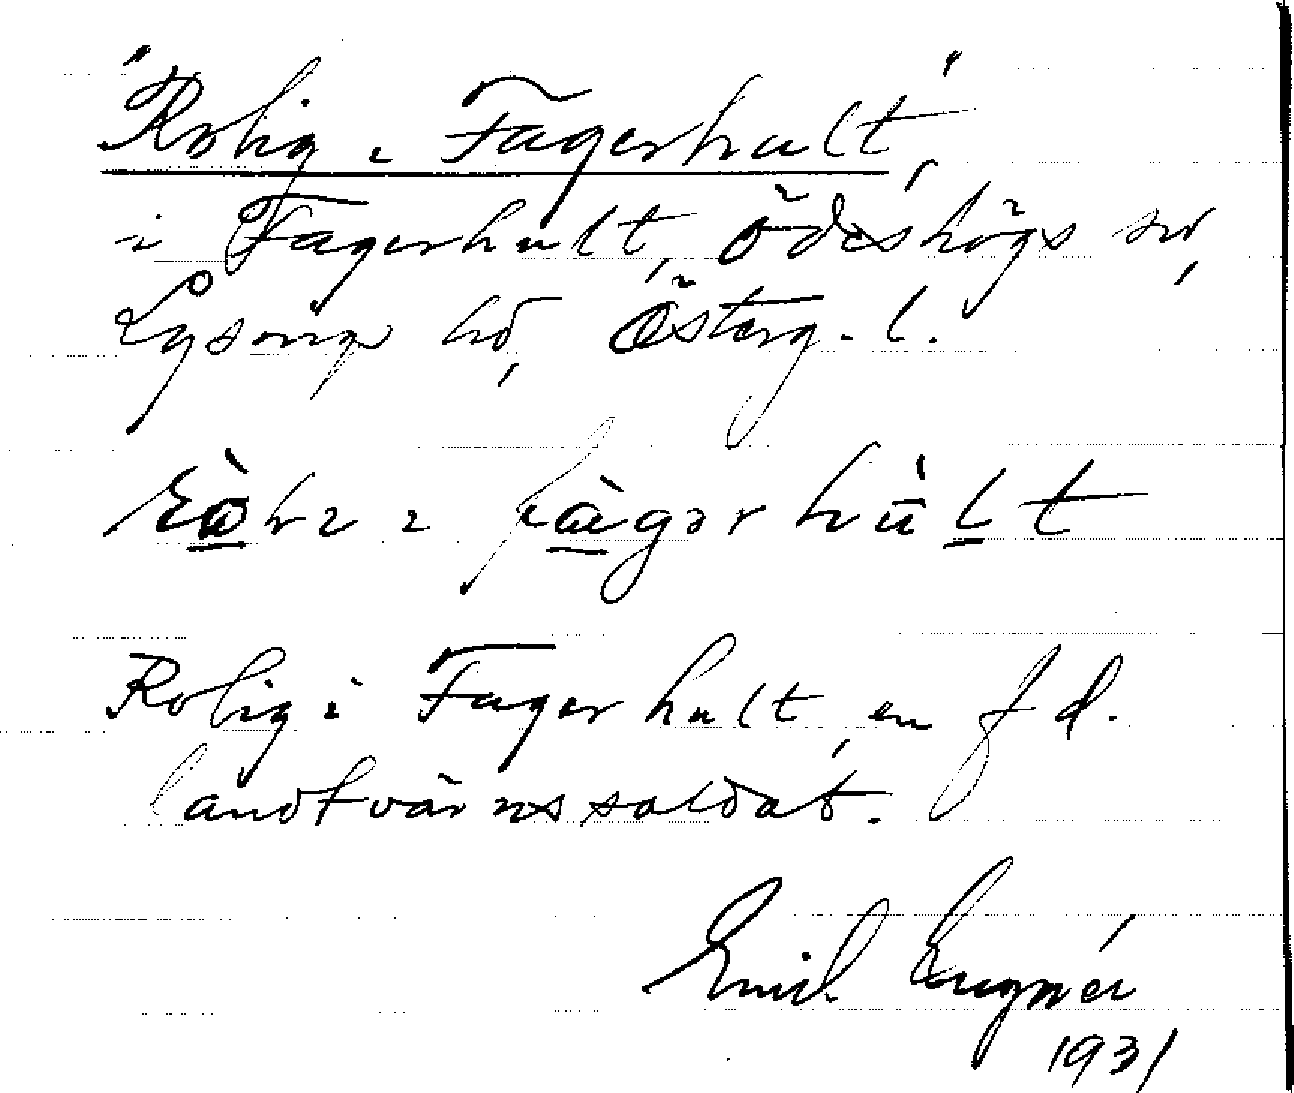 "Rolig i Fagerhult",
i Fagerhult, Ödeshögs sn,
Lysings hd, Österg. l.
i fàgər hùlt
Rolig i Fagerhult, en f d.
landtvärnssoldat.
Emil
1931